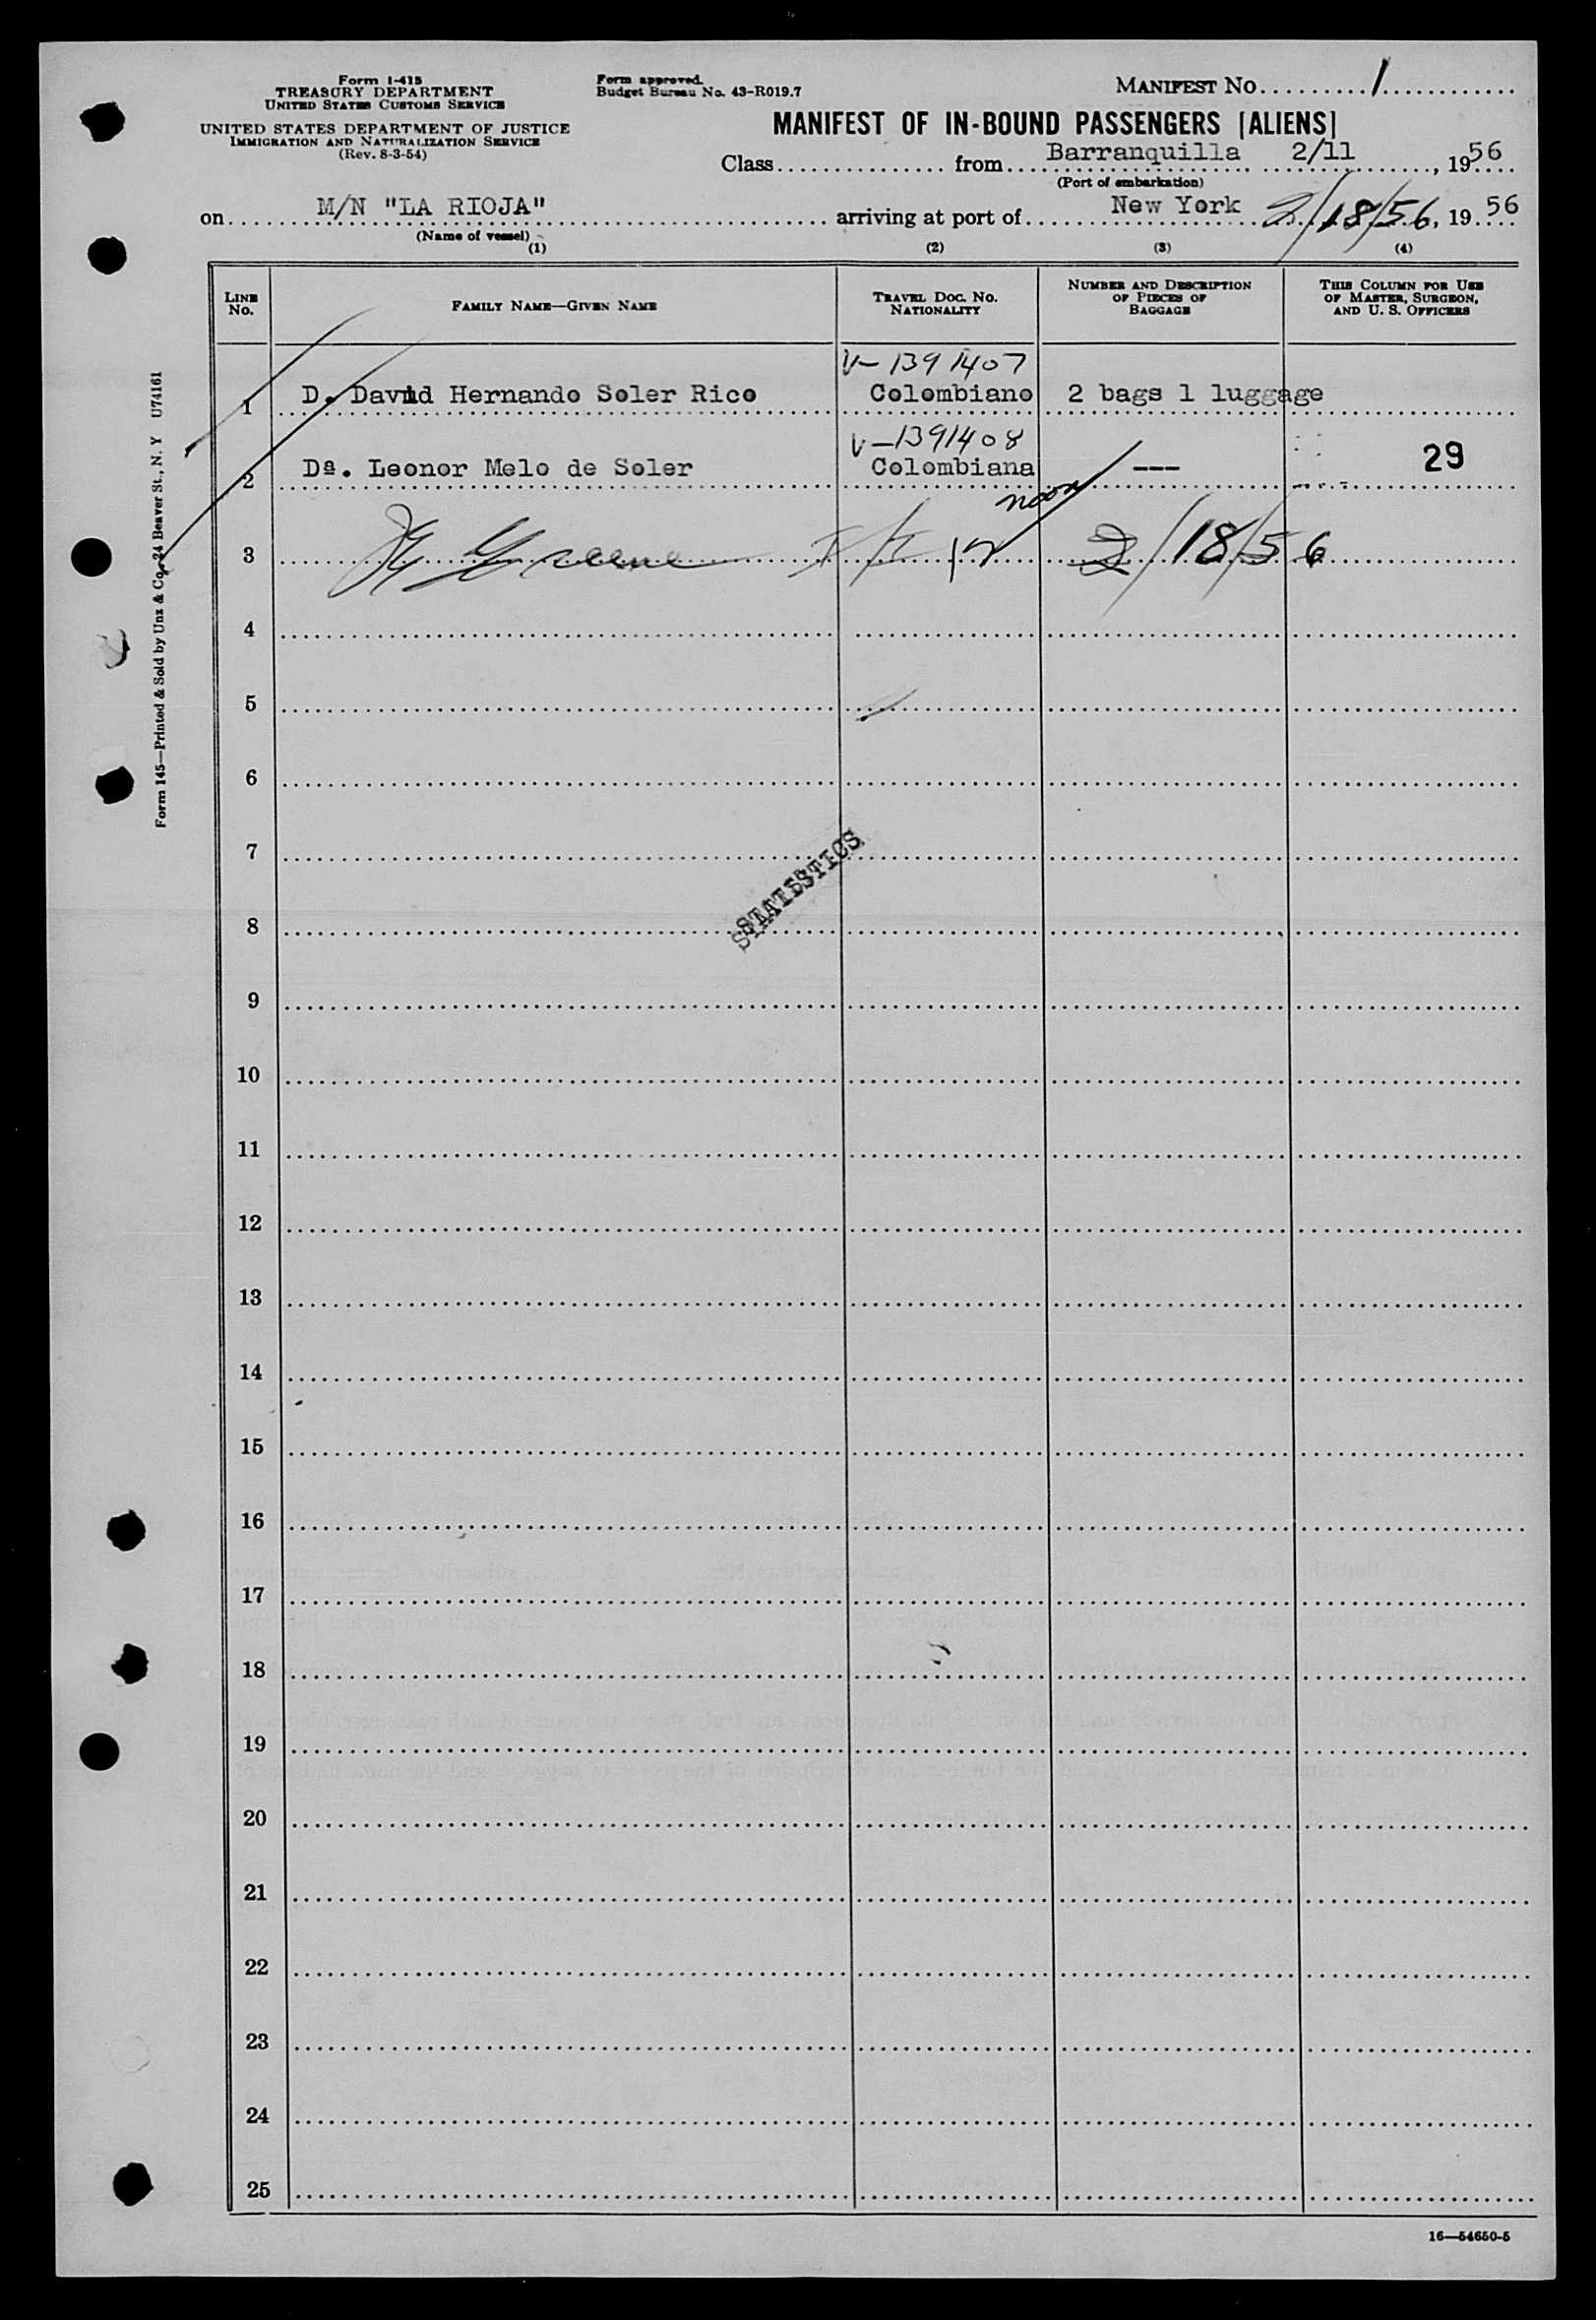 Form I-415
TREASURY DEPARTMENT
UNITED STATES CUSTOMS SERVICE
UNITED STATES DEPARTMENT OF JUSTICE
IMMIGRATION AND NATURALIZATION SERVICE
(Rev. 8-3-54)
Form approved.
Budget Bureau No. 43-R019.7
MANIFEST No. 1
MANIFEST OF IN-BOUND PASSENGERS [ALIENS]
Class from Barranquilla 2/11, 1956
(Port of embarkation)
on M/N "LA RIOJA" arriving at port of New York 2/18/56, 19 56
(Name of vessel)
(1) (2) (3) (4)
LINE No. FAMILY NAME—GIVEN NAME TRAVEL DOC. No. NATIONALITY NUMBER AND DESCRIPTION OF PIECES OF BAGGAGE THIS COLUMN FOR USE OF MASTER, SURGEON, AND U. S. OFFICERS
V-1391407
1 D. David Hernando Soler Rico Colombiano 2 bags 1 luggage
V-1391408
2 Dª. Leonor Melo de Soler Colombiana --- 29
3 Greene 12 noon 2/18/56
4
5
6
7
STATISTICS
8
9
10
11
12
13
14
15
16
17
18
19
20
21
22
23
24
25
16—54650-5
Form 145—Printed & Sold by Unz & Co., 24 Beaver St., N. Y U74161